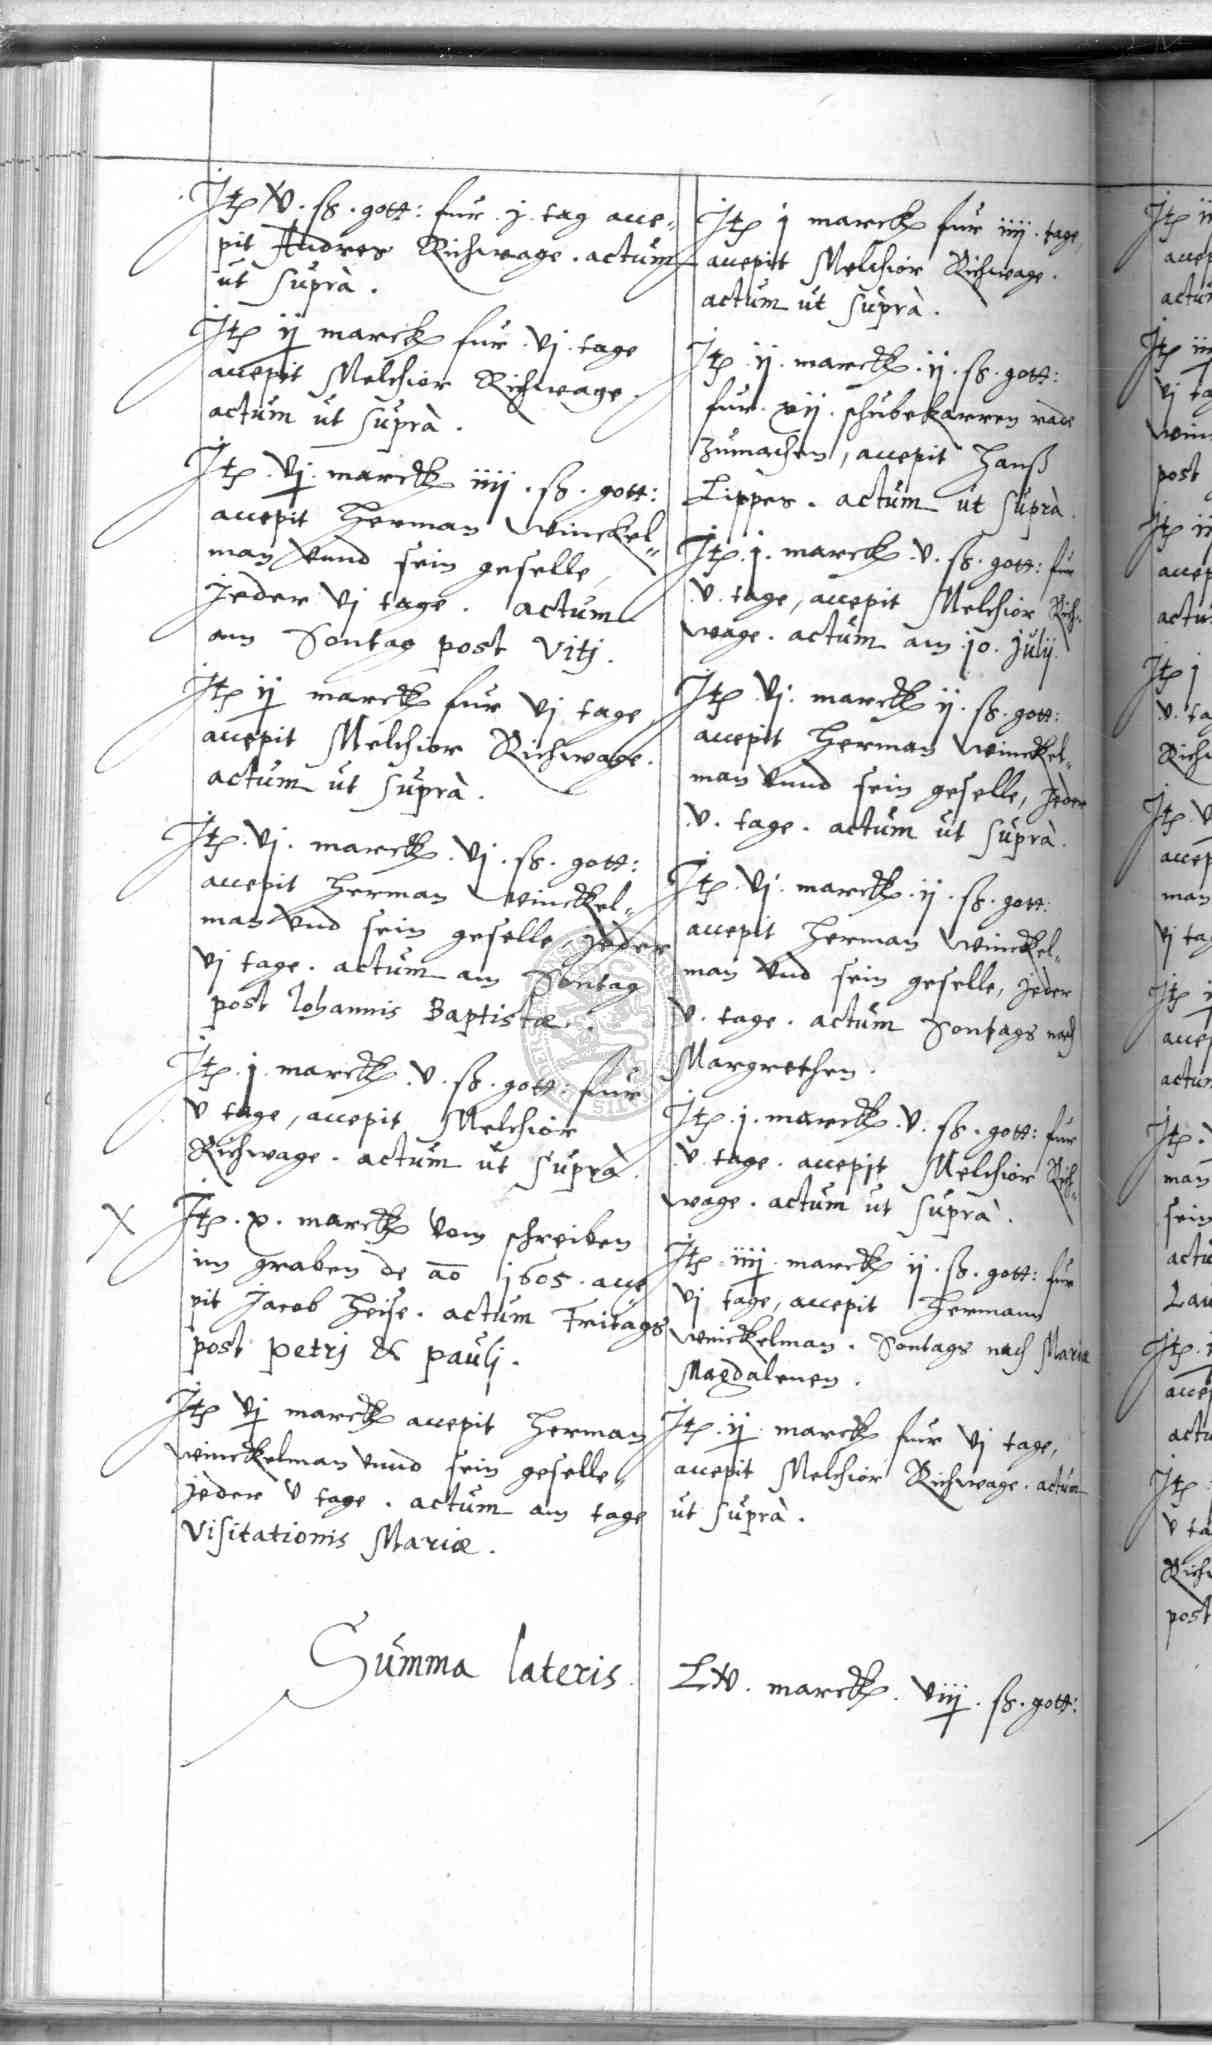 Itē xv. sß. gott: fur .j. tag acce-
pit Andres Richwage. actum
ut suprà.
Itē ij marck fur .vj. tage
accepit Melchior Richwage.
actum ut suprà.
Itē .vj. marck iiij. sß. gott:
accepit Herman Winckel-
man vnnd sein geselle,
jeder vj tage. actum
am Sontag post Vitj.
Itē ij marck fur vj tage,
accepit Melchior Richwage.
actum ut suprà.
Itē .vj. marck .vj. sß. gott:
accepit Herman Winckel-
man vnd sein geselle, jeder
vj tage. actum am Sontag
post Iohannis Baptistæ.
Itē .j. marck .v. sß. gott: fur
v tage, accepit Melchior
Richwage. actum ut suprà.
X Itē .x. marck vom schreiben
im graben de aō 1605. acce
pit Jacob Heise. actum Fritags
post petrj & paulj.
Itē vj marck accepit Herman
Winckelman vnnd sein geselle,
jeder v tage. actum am tage
Visitationis Mariæ.
Itē j marck fur iiij. tage,
accepit Melchior Richwage.
actum ut suprà.
Itē .ij. marck .ij. sß. gott:
fur .xij. schubekarren rade
zumachen, accepit Hanß
Lippes. actum ut suprà.
Itē .j. marck .v. sß. gott: fur
.v. tage, accepit Melchior Rich-
wage. actum am .10. Julij.
Itē .vj. marck ij. sß. gott:
accepit Herman Winckel-
man vnnd sein geselle, jeder
.v. tage. actum ut suprà.
Itē .vj. marck .ij. sß. gott:
accepit Herman Winckel-
man vnd sein geselle, jeder
v. tage. actum Sontags nach
Margrethen.
Itē .j. marck .v. sß. gott: fur
.v. tage. accepit Melchior Rich-
wage. actum ut suprà.
Itē .iiij. marck ij. sß. gott: fur
vj tage, accepit Hermann
Winckelman. Sontags nach Maria
Magdalenen.
Itē .ij. marck fur vj tage,
accepit Melchior Richwage. actum
ut suprà.
Summa lateris. Lxv. marck. viij. sß. gott: